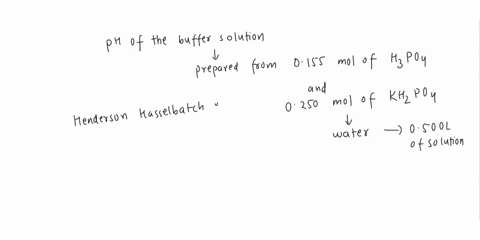 pH of the buffer solution
↓
prepared from 0.155 mol of H₃PO₄
and
Henderson Hasselbatch 0.250 mol of KH₂PO₄
↓
water → 0.500L
of solution